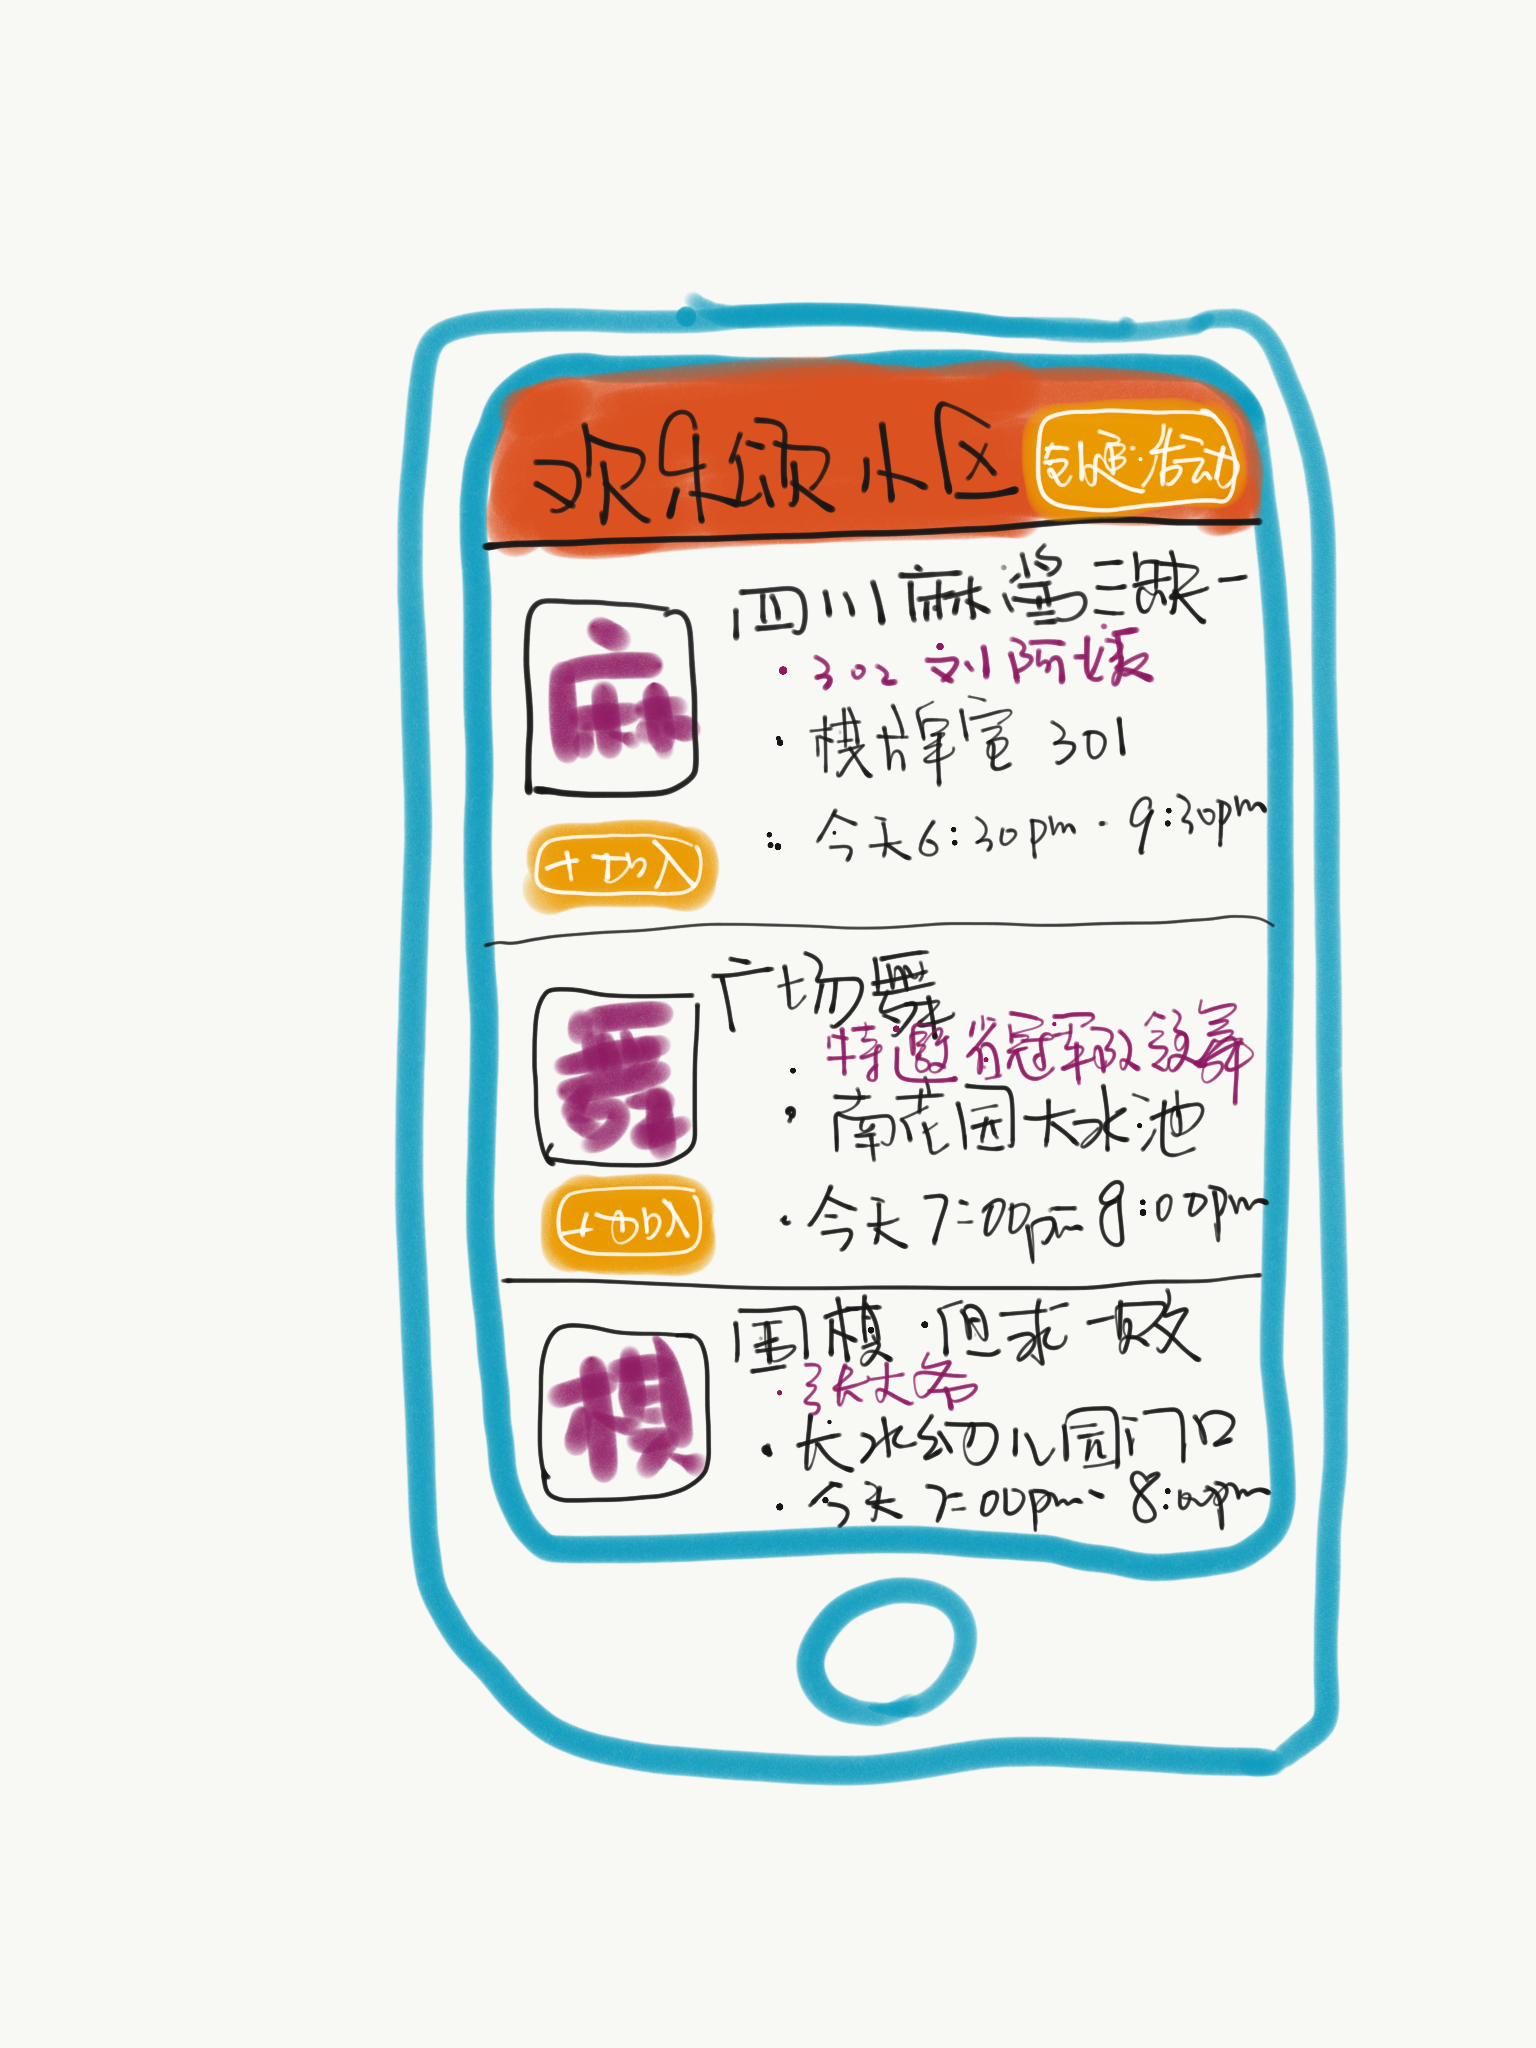 欢乐颂小区
创建活动
麻
四川麻酱三缺一
302 刘阿姨
棋牌室 301
今天6:30pm - 9:30pm
+加入
舞
广场舞
特邀省冠军队领舞
南花园大水池
今天7:00pm-8:00pm
+加入
棋
围棋·但求一败
张大爷
长水幼儿园门口
今天7:00pm - 8:00pm